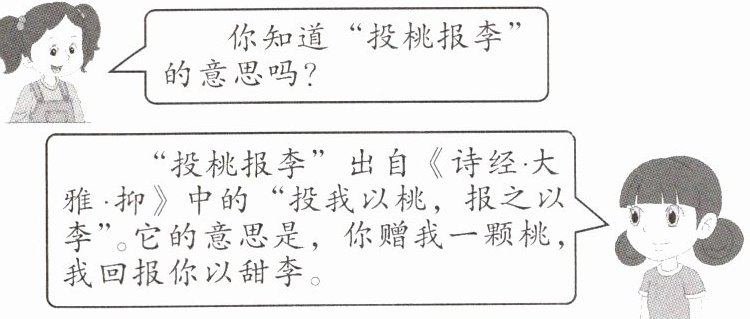 你知道“投桃报李”
的意思吗?
“投桃报李”出自《诗经·大
雅·抑》中的“投我以桃，报之以
李”。它的意思是，你赠我一颗桃，
我回报你以甜李。